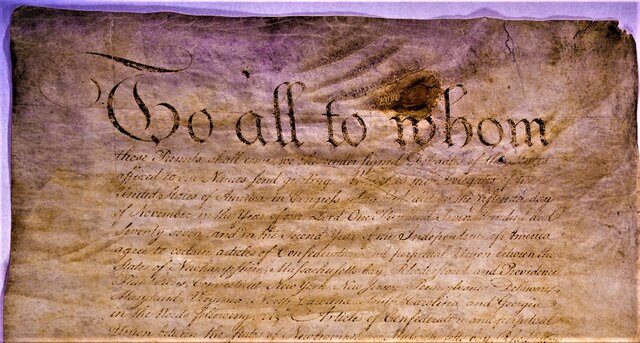 To all to whom
these Presents shall come, we the under signed Delegates of the States
affixed to our Names send greeting. Whereas the Delegates of the
United States of America in Congress assembled did on the fifteenth day
of November in the Year of our Lord One Thousand Seven Hundred and
Seventy seven, and in the Second Year of the Independence of America
agree to certain articles of Confederation and perpetual Union between the
States of Newhampshire, Massachusetts-bay, Rhodeisland and Providence
Plantations, Connecticut, New York, New Jersey, Pennsylvania, Delaware,
Maryland, Virginia, North-Carolina, South-Carolina and Georgia
in the Words following, viz. "Articles of Confederation and perpetual
Union between the States of Newhampshire, Massachusetts-bay,